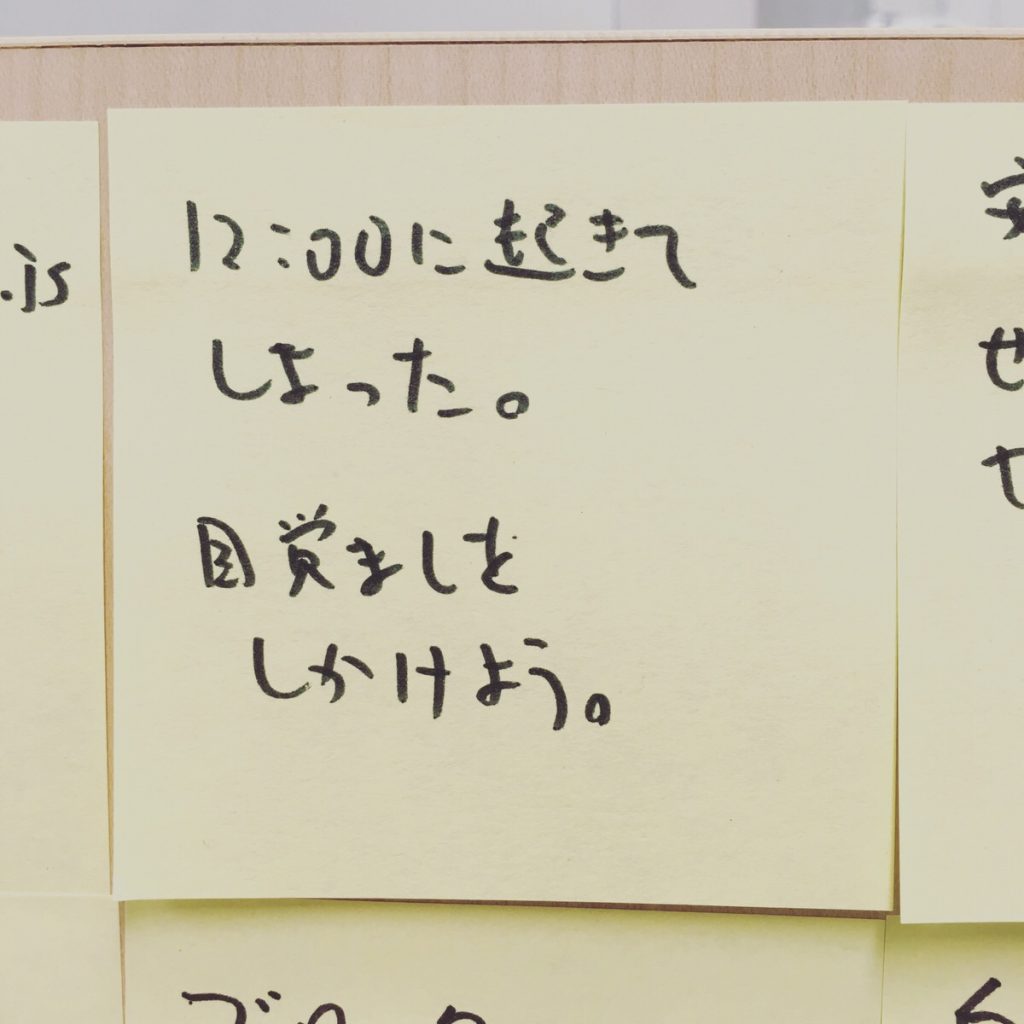 .js
12:00に起きて
しまった。
目覚ましを
しかけよう。
安
せ
せ